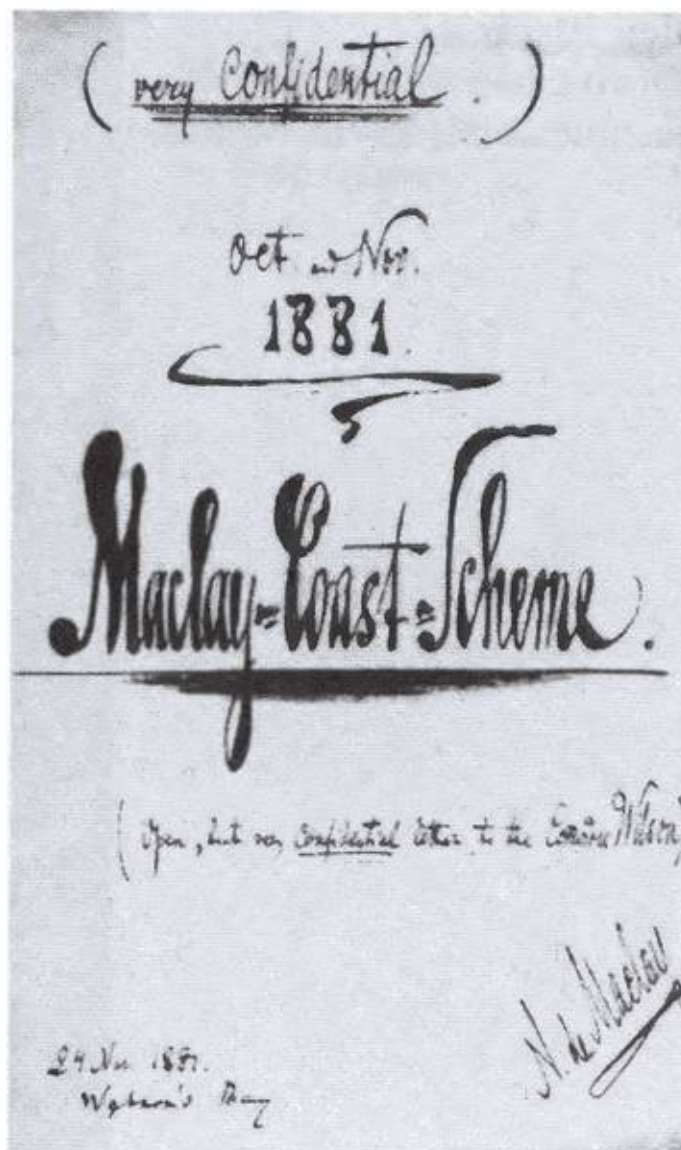 ( very Confidential . )
Oct. and Nov.
1881.
Maclay=Coast=Scheme.
( Open, but very confidential letter to the Comodore Wilson)
N. de Maclay
24 Nov 1881.
Watson's Bay